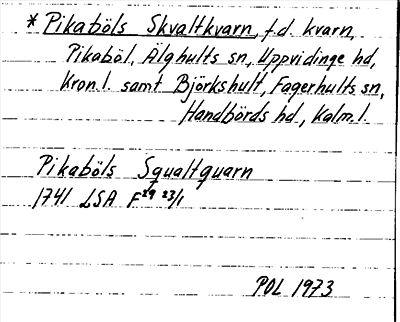 * Pikaböls Skvaltkvarn, f.d. kvarn,
Pikaböl, Älghults sn, Uppvidinge hd,
Kron.l. samt Björkshult, Fagerhults sn,
Handbörds hd, Kalm.l.
Pikaböls Squaltquarn
1741 LSA F29 23/1
POL 1973